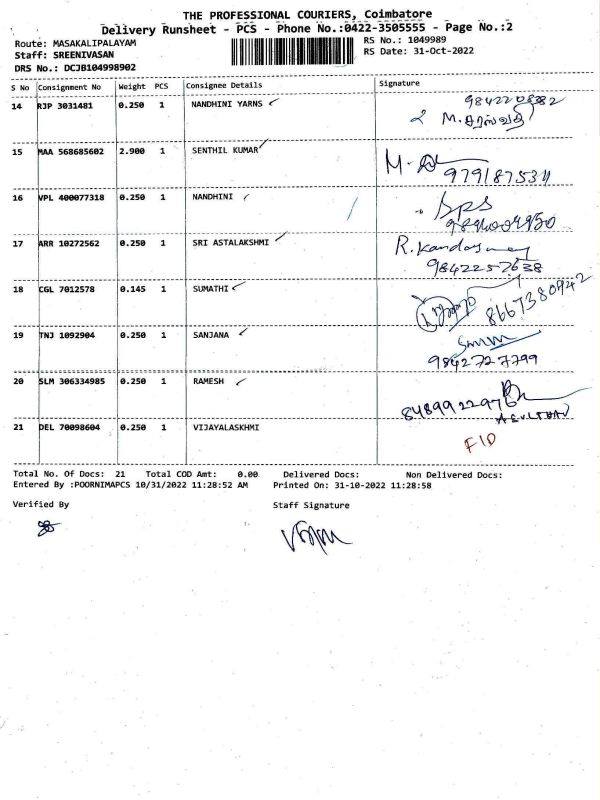 THE PROFESSIONAL COURIERS, Coimbatore
Delivery Runsheet - PCS - Phone No.:0422-3505555 - Page No.:2
Route: MASAKALIPALAYAM
RS No.: 1049989
Staff: SREENIVASAN
RS Date: 31-Oct-2022
DRS No.: DCJB104998902
S No Consignment No Weight PCS Consignee Details Signature
14 RJP 3031481 0.250 1 NANDHINI YARNS
M. சரஸ்வதி
15 MAA 568685602 2.900 1 SENTHIL KUMAR
16 VPL 400077318 0.250 1 NANDHINI
17 ARR 10272562 0.250 1 SRI ASTALAKSHMI
9842257638
18 CGL 7012578 0.145 1 SUMATHI
8667380942
19 TNJ 1092904 0.250 1 SANJANA
9842727799
20 SLM 306334985 0.250 1 RAMESH
21 DEL 70098604 0.250 1 VIJAYALASKHMI
Total No. Of Docs: 21 Total COD Amt: 0.00 Delivered Docs: Non Delivered Docs:
Entered By :POORNIMAPCS 10/31/2022 11:28:52 AM Printed On: 31-10-2022 11:28:58
Verified By Staff Signature